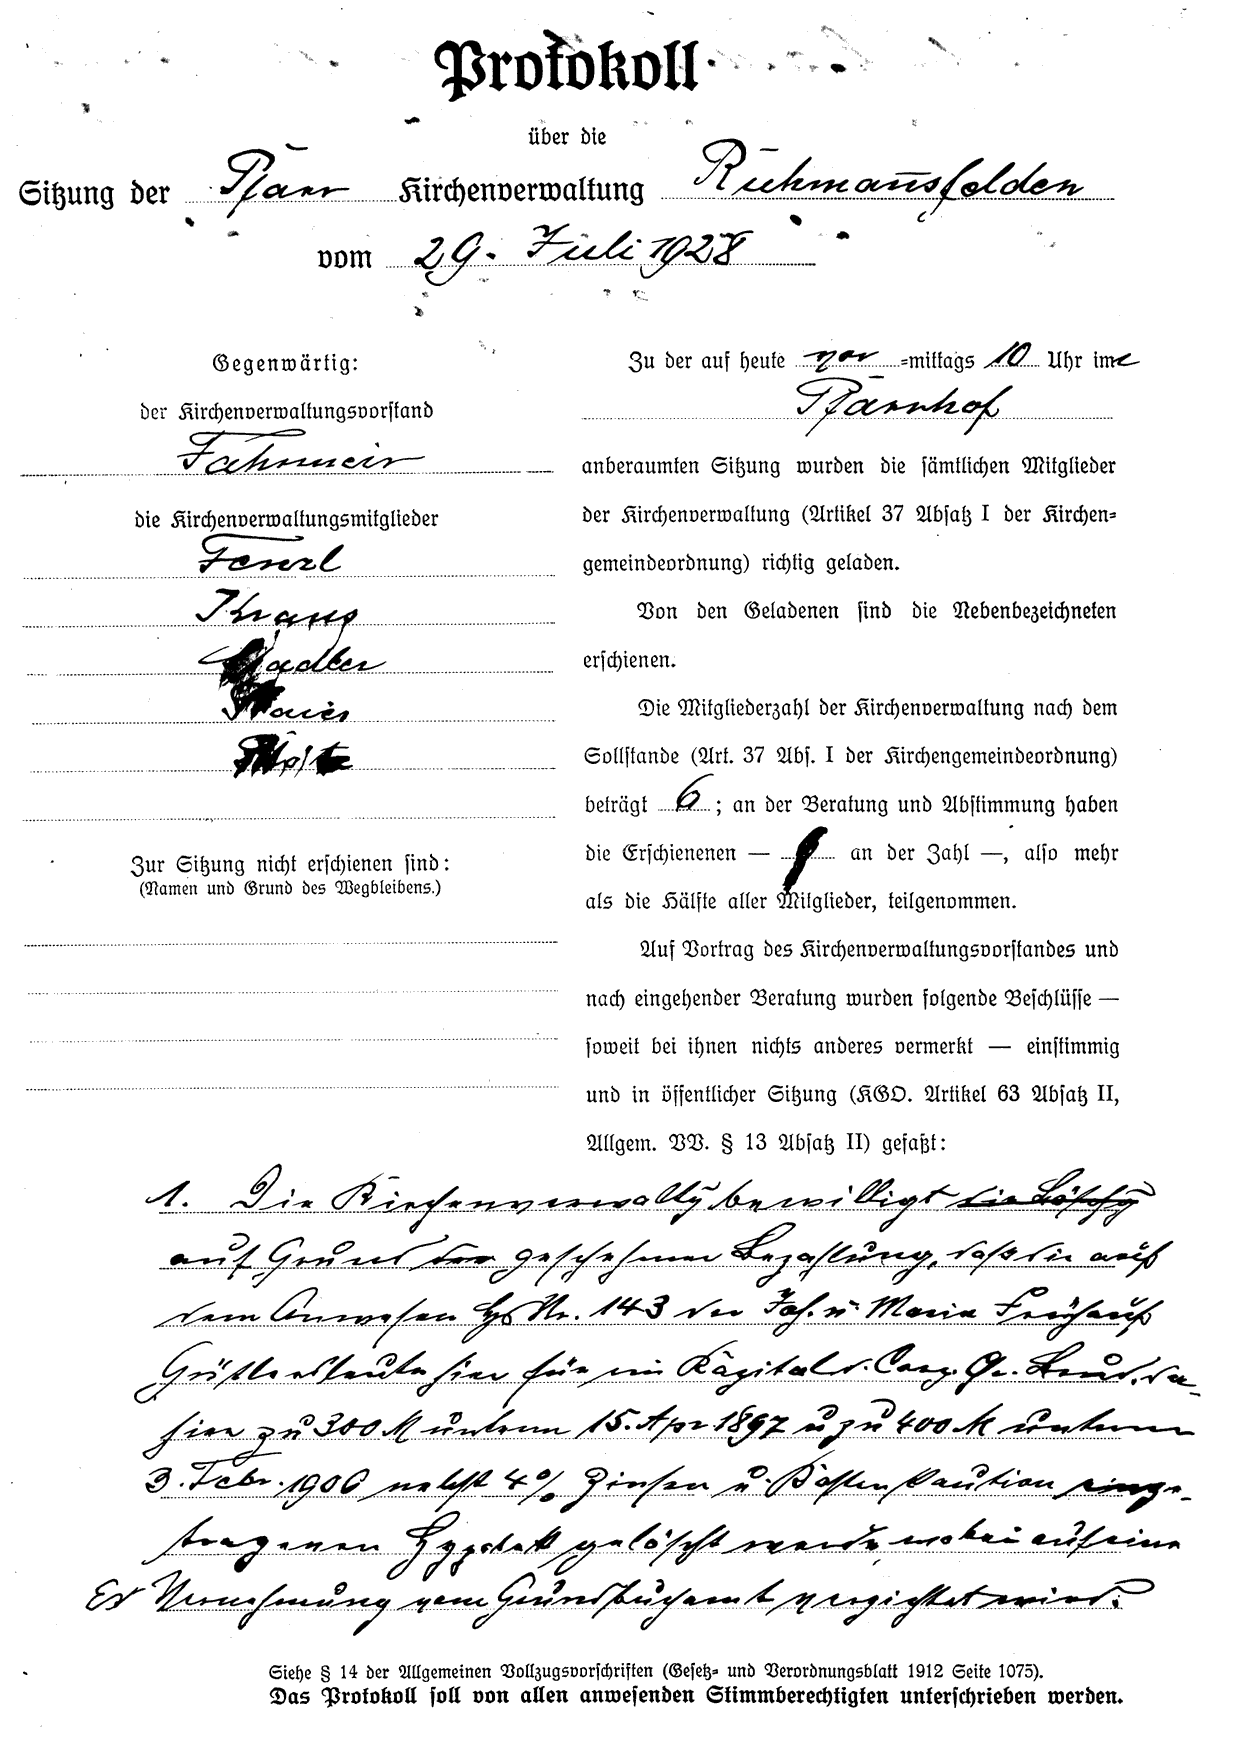 Protokoll
über die
Sitzung der Pfarr Kirchenverwaltung Ruhmannsfelden
vom 29. Juli 1928
Gegenwärtig:
der Kirchenverwaltungsvorstand
Fahrmeir
die Kirchenverwaltungsmitglieder
Fenzl
Kraus
Stadler
Maier
Zur Sitzung nicht erschienen sind:
(Namen und Grund des Wegbleibens.)
Zu der auf heute vor =mittags 10 Uhr im
Pfarrhof
anberaumten Sitzung wurden die sämtlichen Mitglieder
der Kirchenverwaltung (Artikel 37 Absatz I der Kirchen=
gemeindeordnung) richtig geladen.
Von den Geladenen sind die Nebenbezeichneten
erschienen.
Die Mitgliederzahl der Kirchenverwaltung nach dem
Sollstande (Art. 37 Abs. I der Kirchengemeindeordnung)
beträgt 6; an der Beratung und Abstimmung haben
die Erschienenen — an der Zahl —, also mehr
als die Hälfte aller Mitglieder, teilgenommen.
Auf Vortrag des Kirchenverwaltungsvorstandes und
nach eingehender Beratung wurden folgende Beschlüsse —
soweit bei ihnen nichts anderes vermerkt — einstimmig
und in öffentlicher Sitzung (KGO. Artikel 63 Absatz II,
Allgem. VV. § 13 Absatz II) gefaßt:
1. Die Kirchenverwaltg bewilligt die Löschg
auf Grund der geschehener Bezahlung, daß die auf
dem Anwesen Hs Nr. 143 der Joh. u. Maria Frühauf
Gütlerseheleute hier für ein Kapital d. Corp. Chr. Brud. da-
hier zu 300 M unterm 15. Apr 1897 u zu 400 M unterm
3. Febr. 1906 nebst 4% Zinsen u. Kosten Kaution einge-
tragenen Hypothek gelöscht werde, wobei auf eine
Vernehmung vom Grundbuchamt verzichtet wird.
Siehe § 14 der Allgemeinen Vollzugsvorschriften (Gesetz= und Verordnungsblatt 1912 Seite 1075).
Das Protokoll soll von allen anwesenden Stimmberechtigten unterschrieben werden.